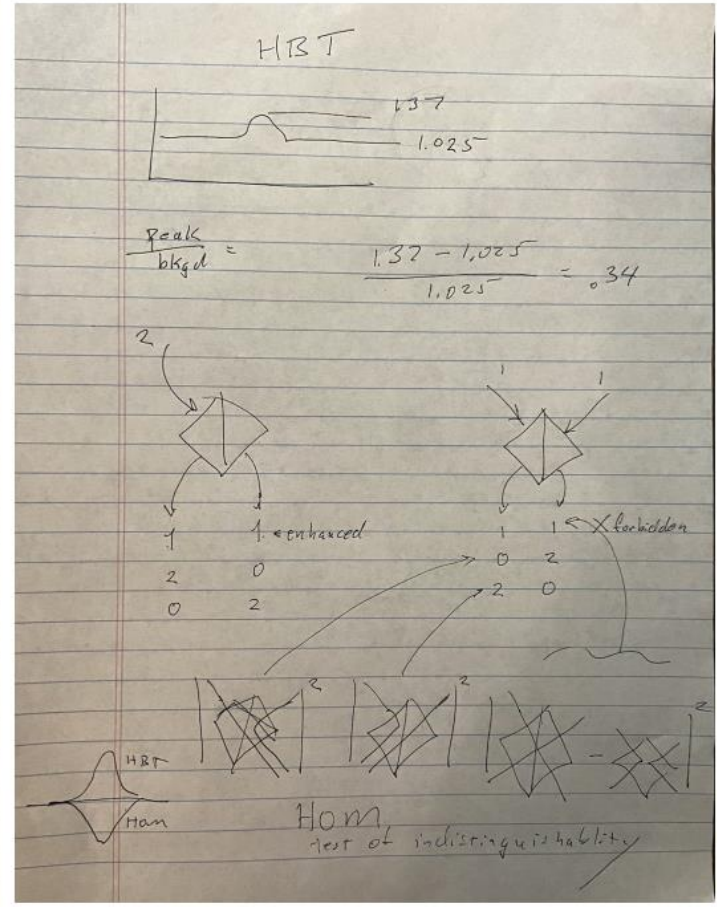 HBT
1.37
1.025
Peak
bkgd =
1.37 - 1.025
1.025
= .34
2
1 1
1 1 enhanced
2 0
0 2
1 1 X forbidden
0 2
2 0
2 2 2
HBT
Hom
HOM
Test of indistinguishablity